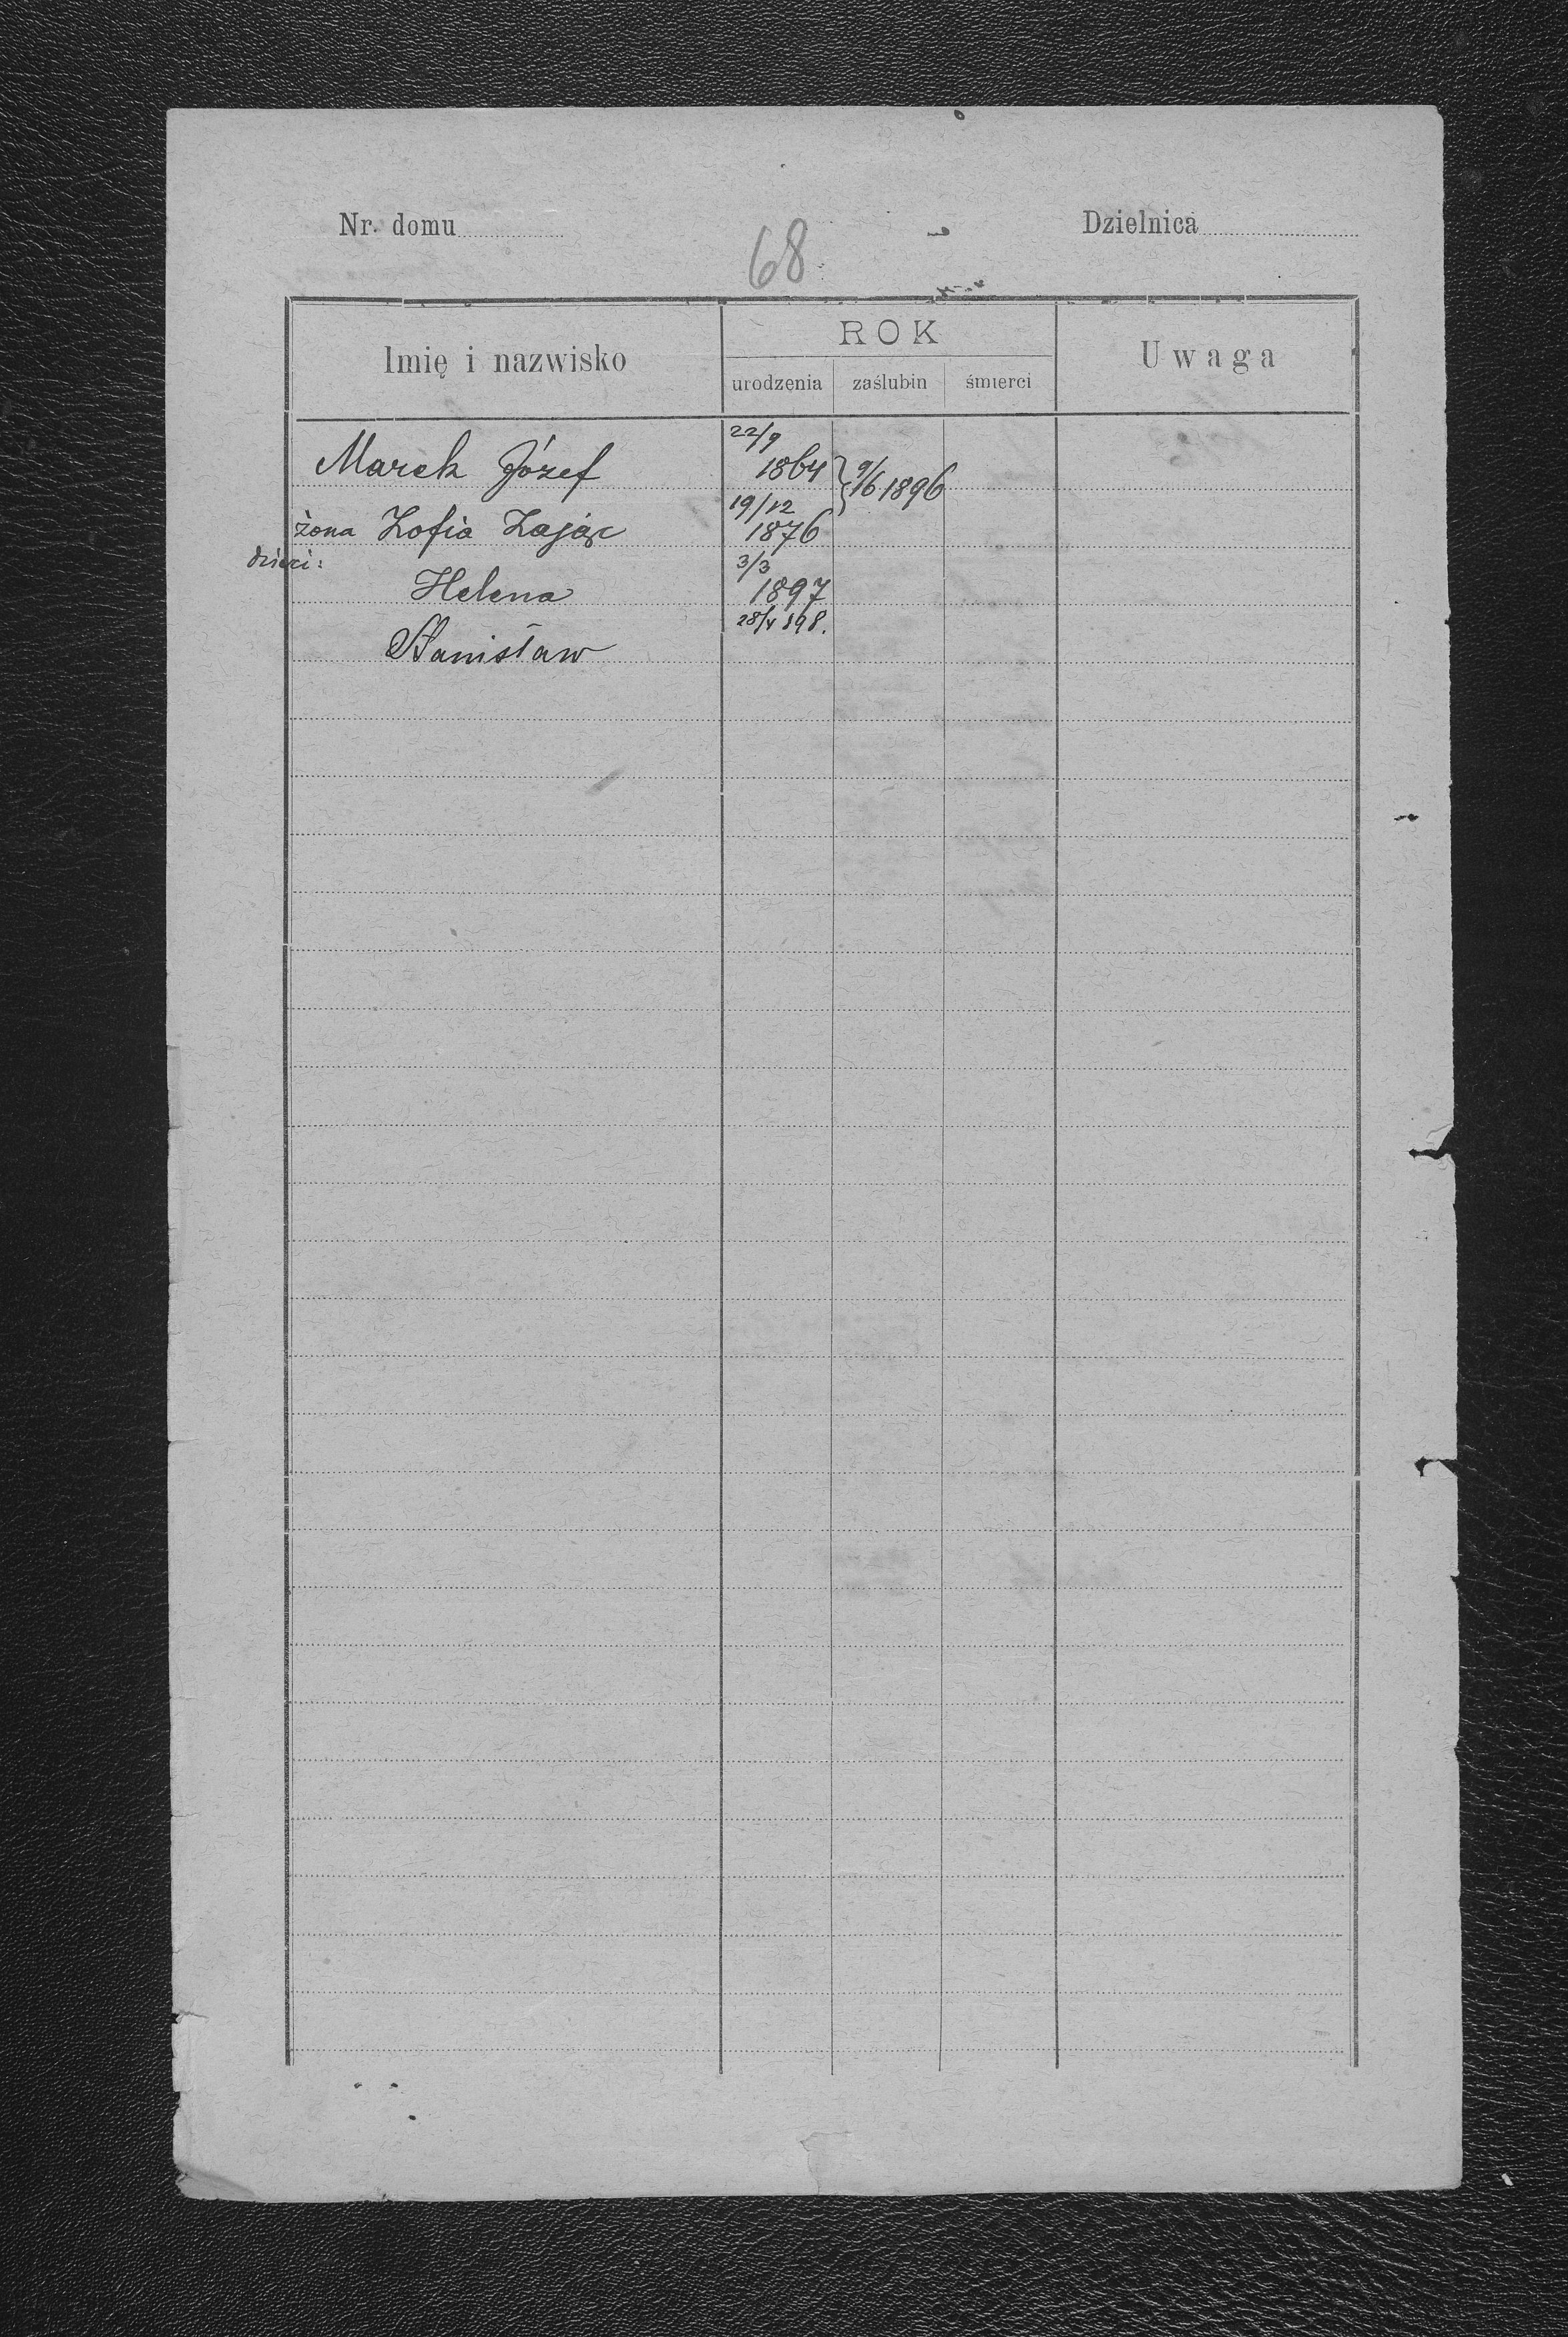 Nr. domu
68
Dzielnica
Imię i nazwisko
ROK
urodzenia
zaślubin
śmierci
Uwaga
22/9
Marek Józef 1864 } 9/6 1896
19/12
żona Zofia Zając 1876
dzieci:
3/3
Helena 1897
28/4 898.
Stanisław